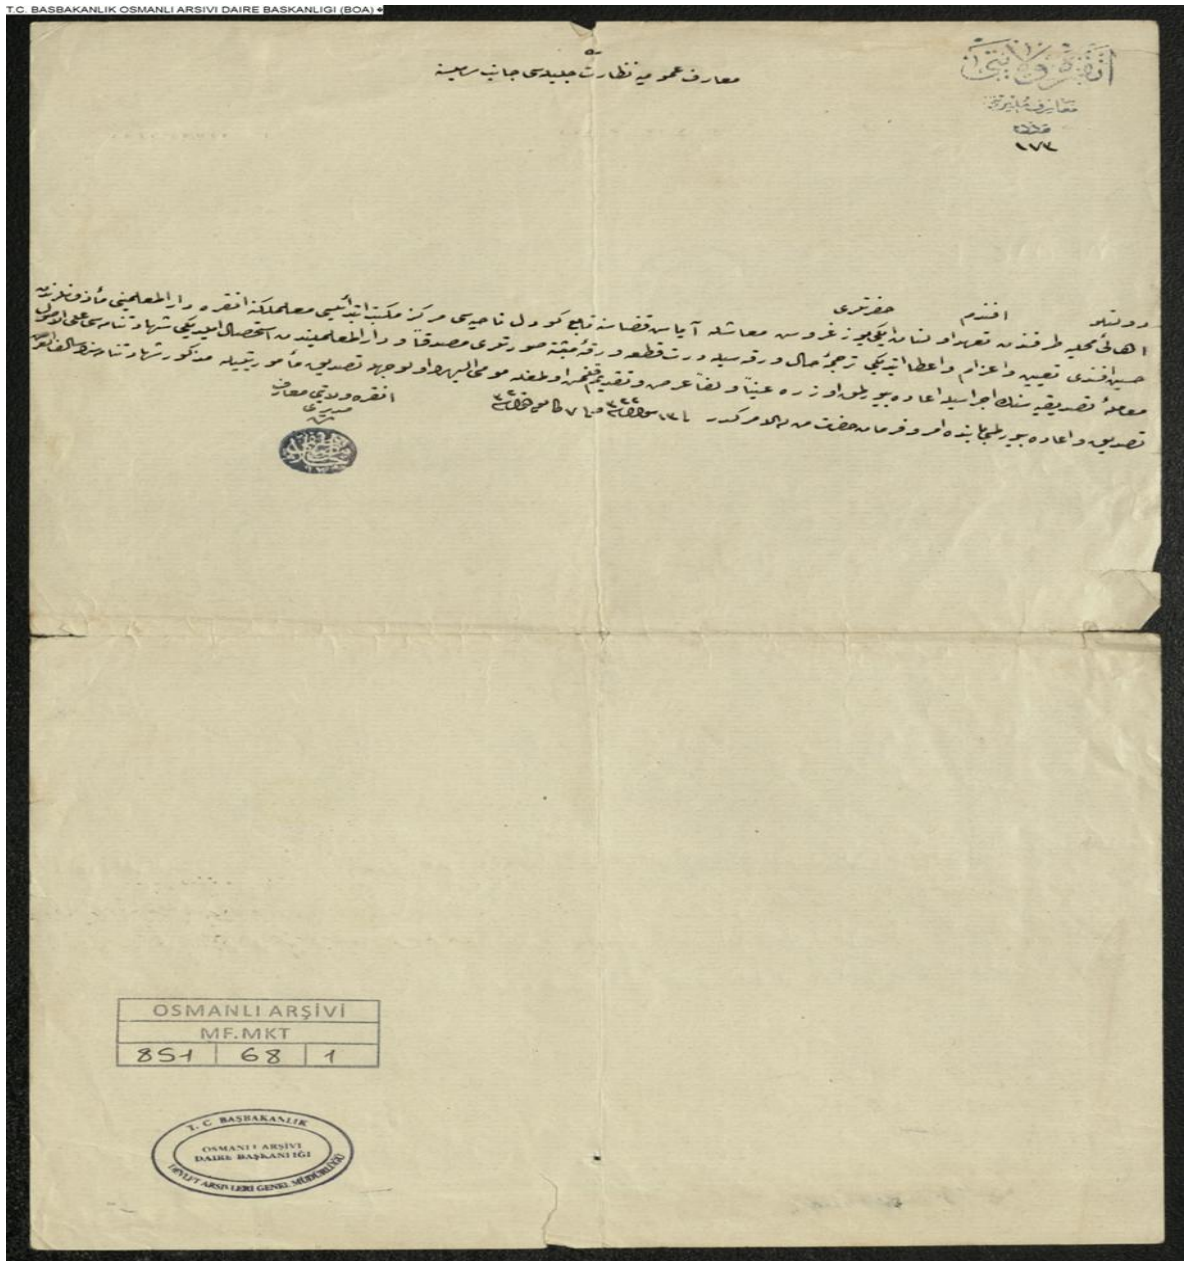 T.C. BASBAKANLIK OSMANLI ARSIVI DAIRE BASKANLIGI (BOA)
انقره ولايتى
معارف مديريتى
عدد
١٧٣
معارف عموميه نظارت جليله‌سى جانب
دولتلو افندم حضرتلرى
اهالئ محليه طرفندن تعهد اولنان ايكيوز غروش معاشله آياش قضاسنه تابع كودل ناحيه‌سى مركز مكتب ابتدائيسى معلملكنه انقره دار المعلمينى مأذونلرندن
حسين افندى تعيين واعزام واعطا ايتديكى ترجمۀ حال ورقه‌سيله درت قطعه ورقۀ مثبته صورتلرى مصدقاً و دار المعلميندن استحصال ايلديكى شهادتنامه‌سى على الاصول
معاملۀ تصديقيه‌سنك اجراسيله اعاده بيورلمق اوزره عيناً ولفاً عرض وتقديم قلنمش اولمغله مومى اليهك اولوجهله تصديق مأموريتيله مذكور شهادتنامه‌نك
تصديق واعاده بيورلمسى بابنده امر وفرمان حضرت من له الامركدر
انقره ولايتى معارف
مديرى
OSMANLI ARŞİVİ
MF.MKT
851 68 1
T. C. BAŞBAKANLIK
OSMANLI ARŞİVİ
DAİRE BAŞKANLIĞI
DEVLET ARŞİVLERİ GENEL MÜDÜRLÜĞÜ